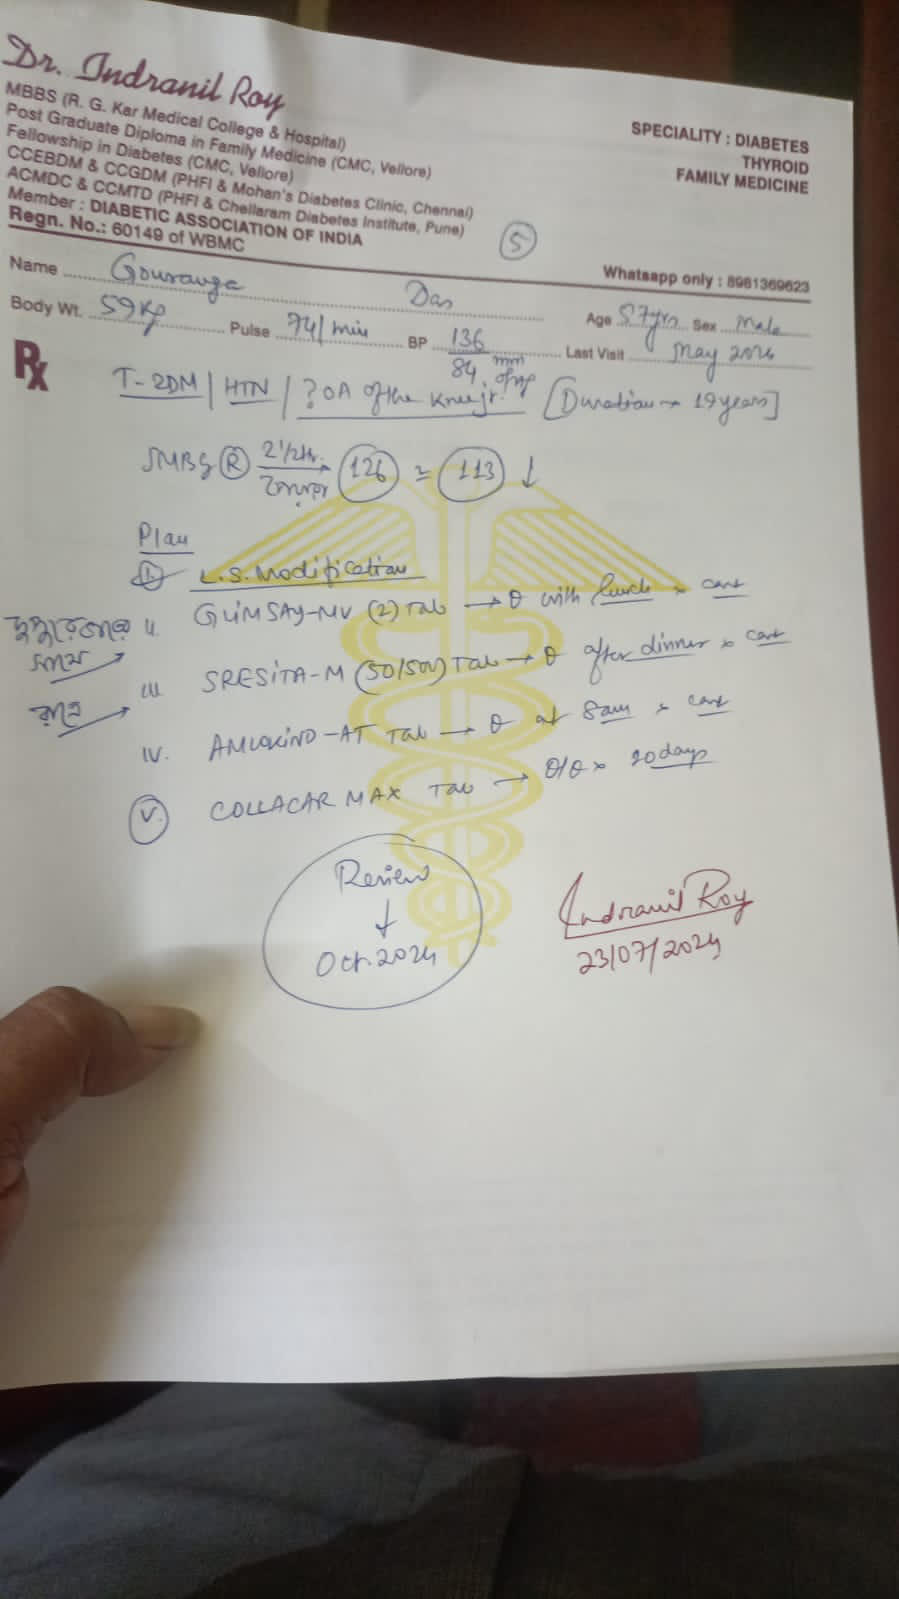 Dr. Indranil Roy
MBBS (R. G. Kar Medical College & Hospital)
Post Graduate Diploma in Family Medicine (CMC, Vellore)
Fellowship in Diabetes (CMC, Vellore)
CCEBDM & CCGDM (PHFI & Mohan's Diabetes Clinic, Chennai)
ACMDC & CCMTD (PHFI & Chellaram Diabetes Institute, Pune)
Member : DIABETIC ASSOCIATION OF INDIA
Regn. No.: 60149 of WBMC
SPECIALITY : DIABETES
THYROID
FAMILY MEDICINE
5
Whatsapp only : 8961369623
Name Gouranga Das Age 57yrs Sex Male
Body Wt. 59Kg Pulse 74/min BP 136/84 mm of Hg Last Visit May 2024
Rx
T-2DM | HTN | ? OA of the Knee jt. [Duration → 19 years]
SMBG R 2 1/2 Hr. 126 ≃ 113 ↓
Plan
I. L.S. Modification
দুপুরের II. GLIMSAY-MV (2) Tab → θ with lunch x cont
রাত্রে → III SRESITA-M (50/500) Tab → θ after dinner x cont
IV. AMLOKIND-AT Tab → θ at 8am x cont
V. COLLACAR MAX Tab → θ/θ x 20 days
Review
↓
Oct. 2024
Indranil Roy
23/07/2024